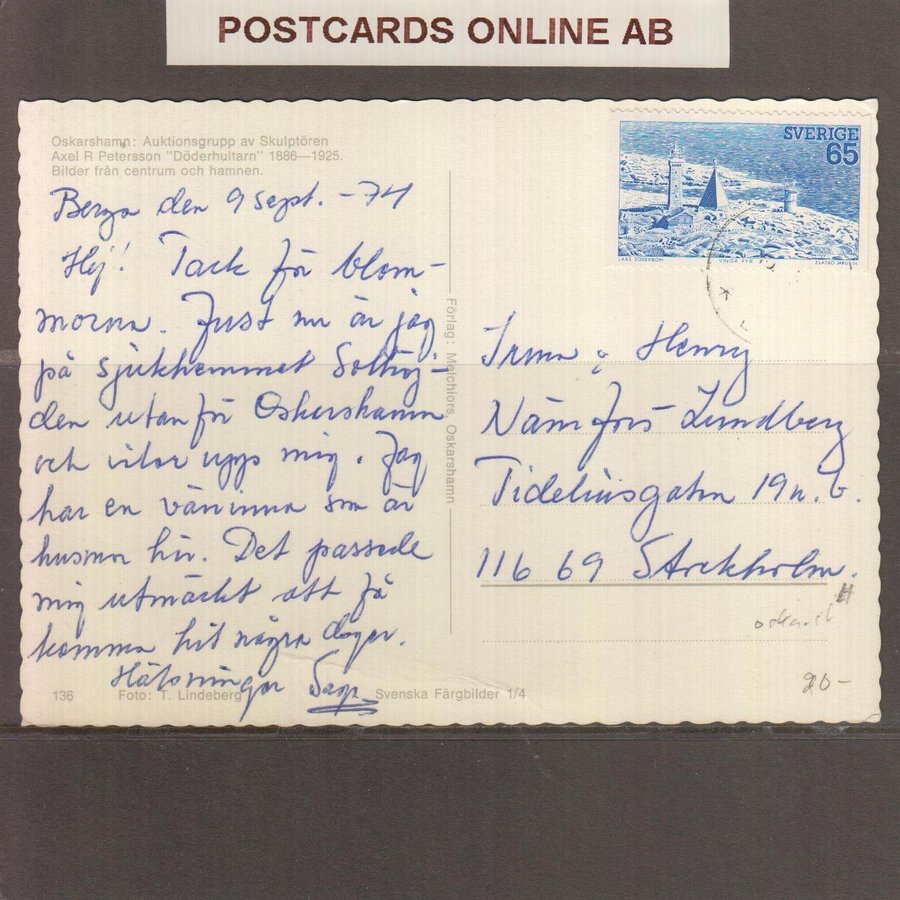 POSTCARDS ONLINE AB
Oskarshamn: Auktionsgrupp av Skulptören
Axel R Petersson "Döderhultarn" 1886—1925.
Bilder från centrum och hamnen.
SVERIGE
65
LARS SÖDERBOM VINGA FYR ZLATKO JAKUS SC
Berga den 9 sept. -74
Hej! Tack för blom-
morna. Just nu är jag
på sjukhemmet Solhöj-
den utanför Oskarshamn
och vilar upp mig. Jag
har en väninna som är
husmor här. Det passade
mig utmärkt att få
komma hit några dagar.
Hälsningar
Förlag: Melchiors, Oskarshamn
Irma & Henry
Lundberg
Tideliusgatan 19 n.b.
116 69 Stockholm.
H
20-
136 Foto: T. Lindeberg Svenska Färgbilder 1/4